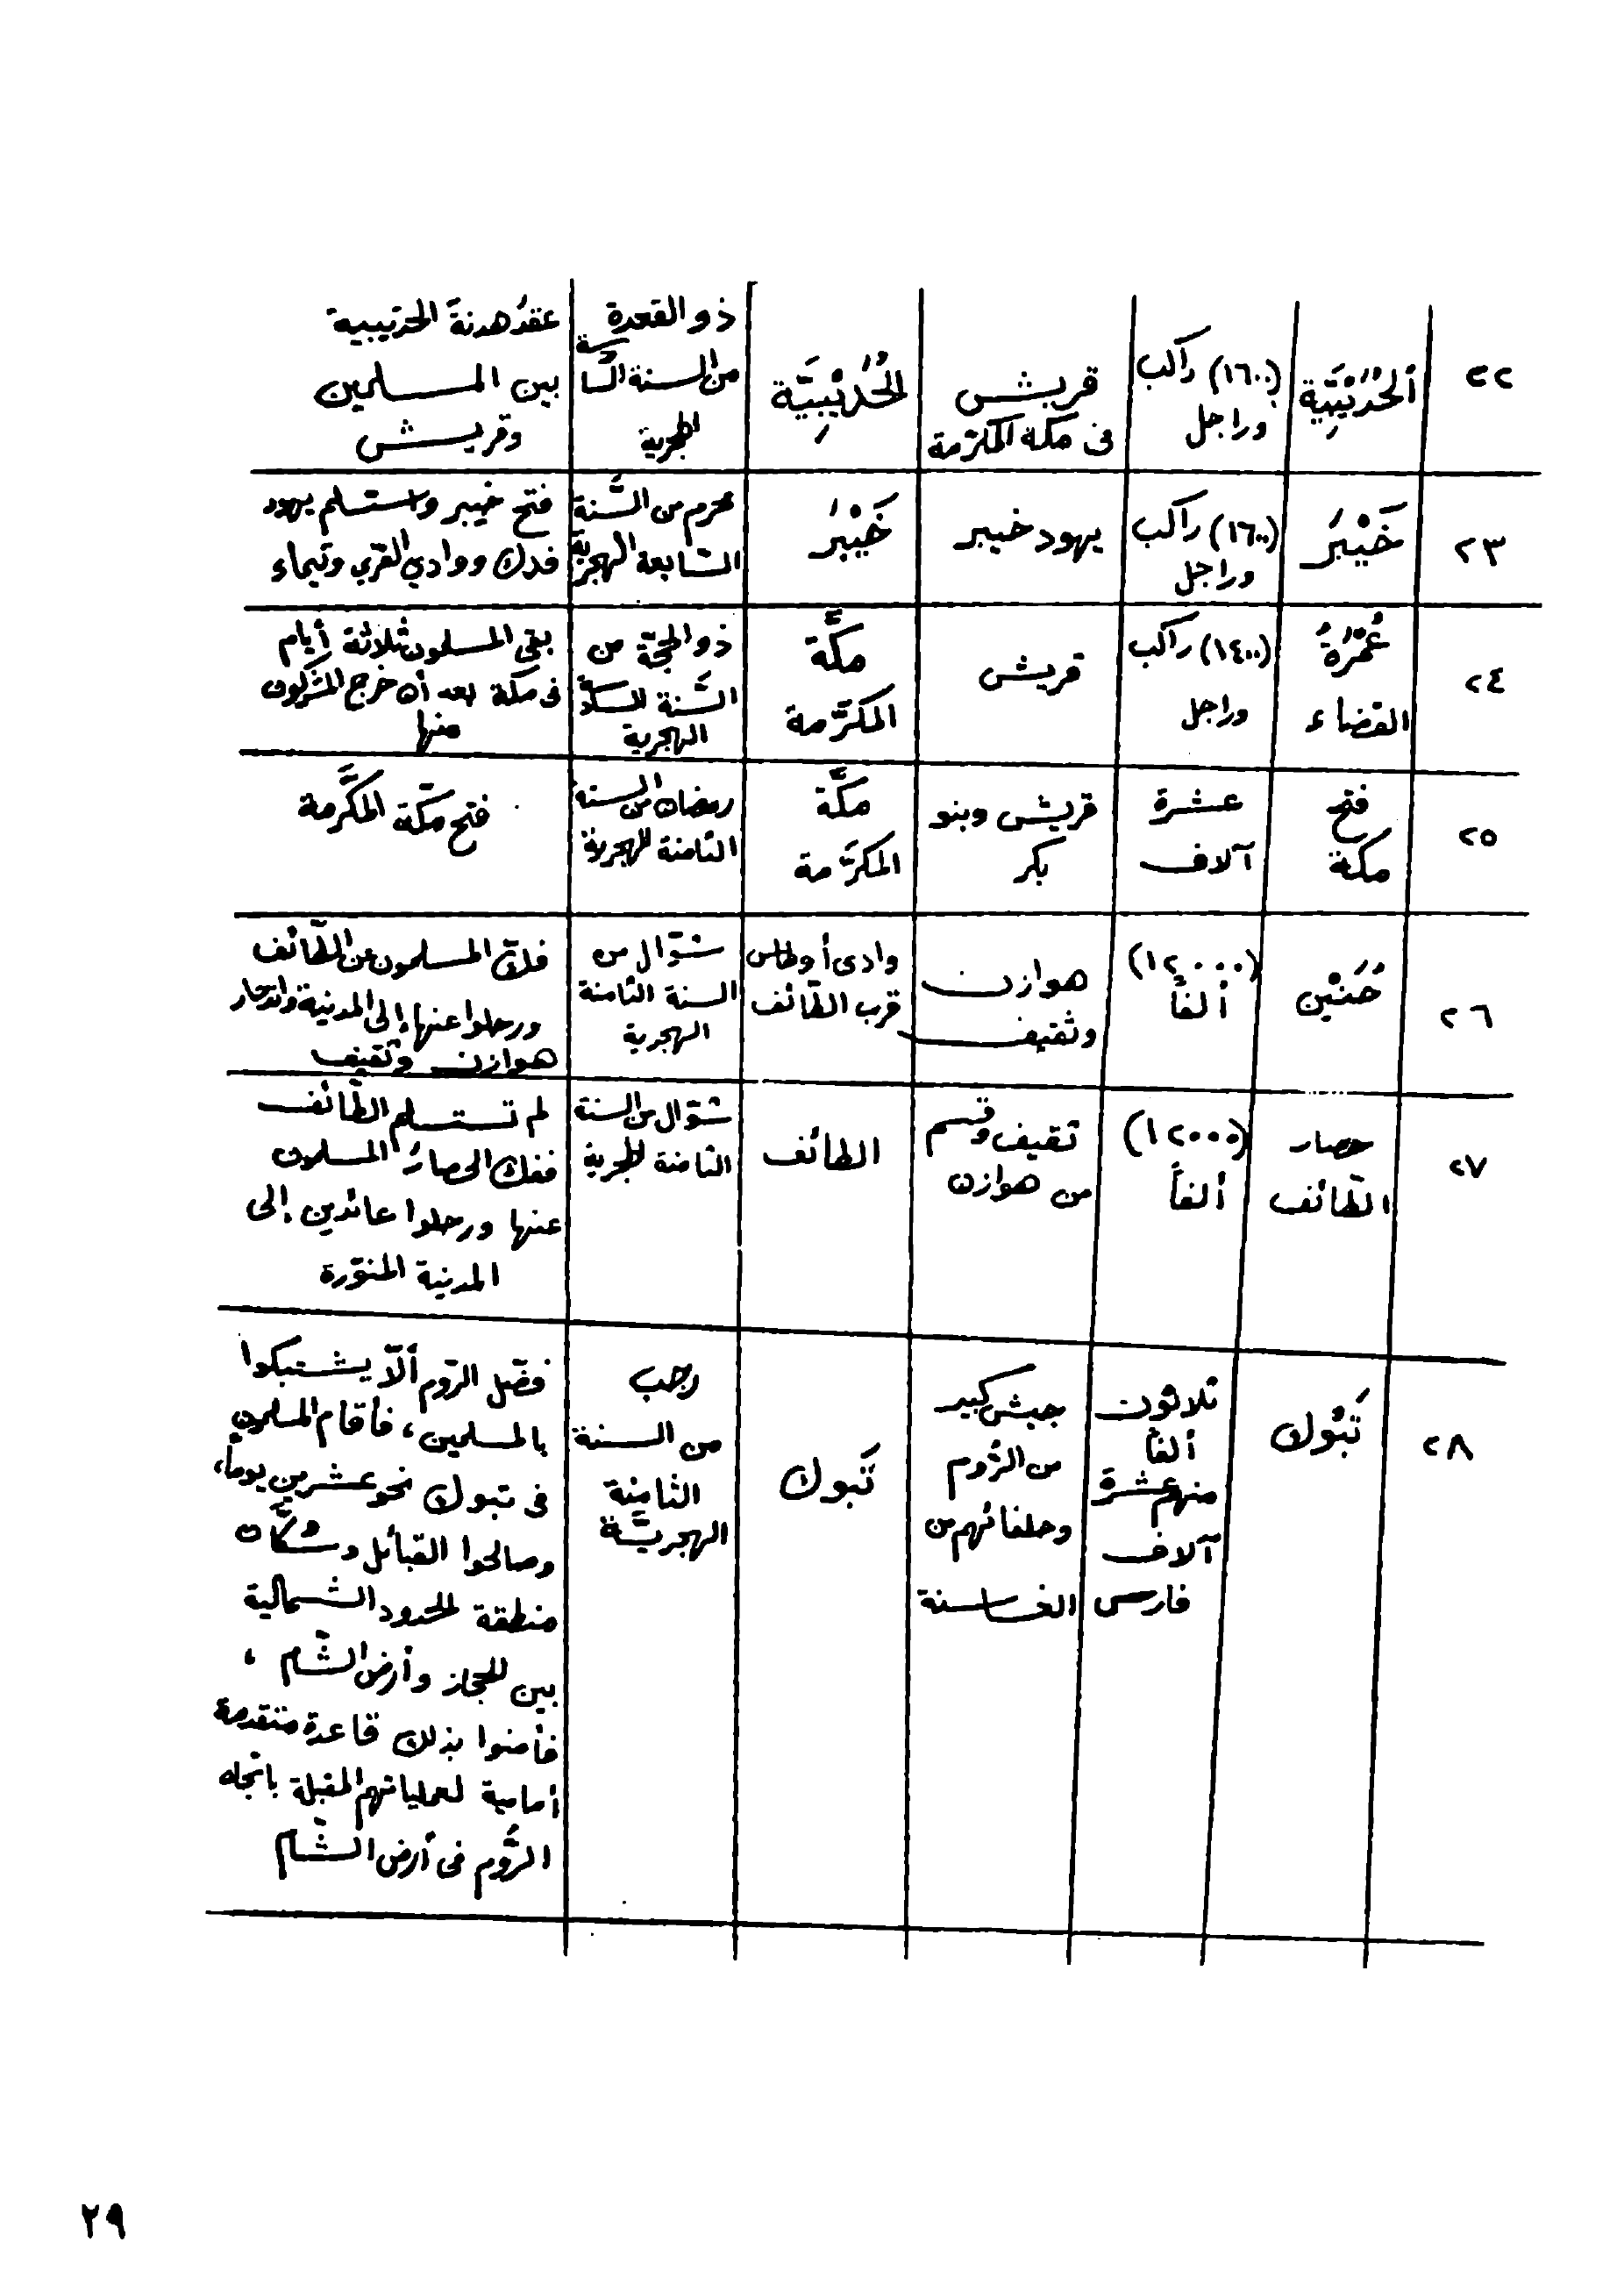 ٢٢
اَلحُدَيْبِيَّة
(١٦٠٠) راكب
وراجل
قريش
فى مكة المكرّمة
الحُدَيْبِيَّة
ذو القعدة
من السنة السّادسة
الهجرية
عقدُ هدنة الحديبية
بين المسلمين
وقريش
٢٣
خَيْبَرُ
(١٦٠٠) راكب
وراجل
يهود خيبر
خَيْبَرُ
محرم من السَّنة
السّابعة الهجرية
فتح خيبر واستسلم يهود
فدك ووادي القرى وتيماء
٢٤
عُمْرَةُ
القضاء
(١٤٠٠) راكب
وراجل
قريش
مكَّة
المكرّمة
ذو الحجّة من
السَّنة السّابعة
الهجرية
بقى المسلمون ثلاثة أيام
فى مكة بعد أن خرج المشركون
منها
٢٥
فتح
مكة
عشرة
آلاف
قريش وبنو
بكر
مكَّة
المكرّمة
رمضان من السنة
الثامنة الهجرية
فتح مكّة المكرَّمة
٢٦
حُنَيْن
(١٢٠٠٠)
ألفاً
هوازن
وثقيف
وادى أوطاس
قرب الطّائف
شوّال من
السنة الثامنة
الهجرية
فلّ المسلمون عن الطّائف
ورحلوا عنها إلى المدينة واندحار
هوازن وثقيف
٢٧
حصار
الطّائف
(١٢٠٠٠)
ألفاً
ثقيف وقسم
من هوازن
الطائف
شوّال من السنة
الثامنة الهجرية
لم تستسلم الطّائف
ففك الحصارَ المسلمون
عنها ورحلوا عائدين إلى
المدينة المنوّرة
٢٨
تَبُوك
ثلاثون
ألفاً
منهم عشرة
آلاف
فارس
جيش كبير
من الرّوم
وحلفائهم من
الغساسنة
تَبوك
رجب
من السنة
الثامنة
الهجريّة
فضّل الرّوم ألاّ يشتبكوا
بالمسلمين، فأقام المسلمون
فى تبوك نحو عشرين يوماً،
وصالحوا القبائل وسُكَّان
منطقة الحدود الشمالية
بين الحجاز وأرض الشّام ،
فأمنوا بذلك قاعدة متقدمة
أمامية لعملياتهم المقبلة باتجاه
الرُّوم فى أرض الشّام
٢٩